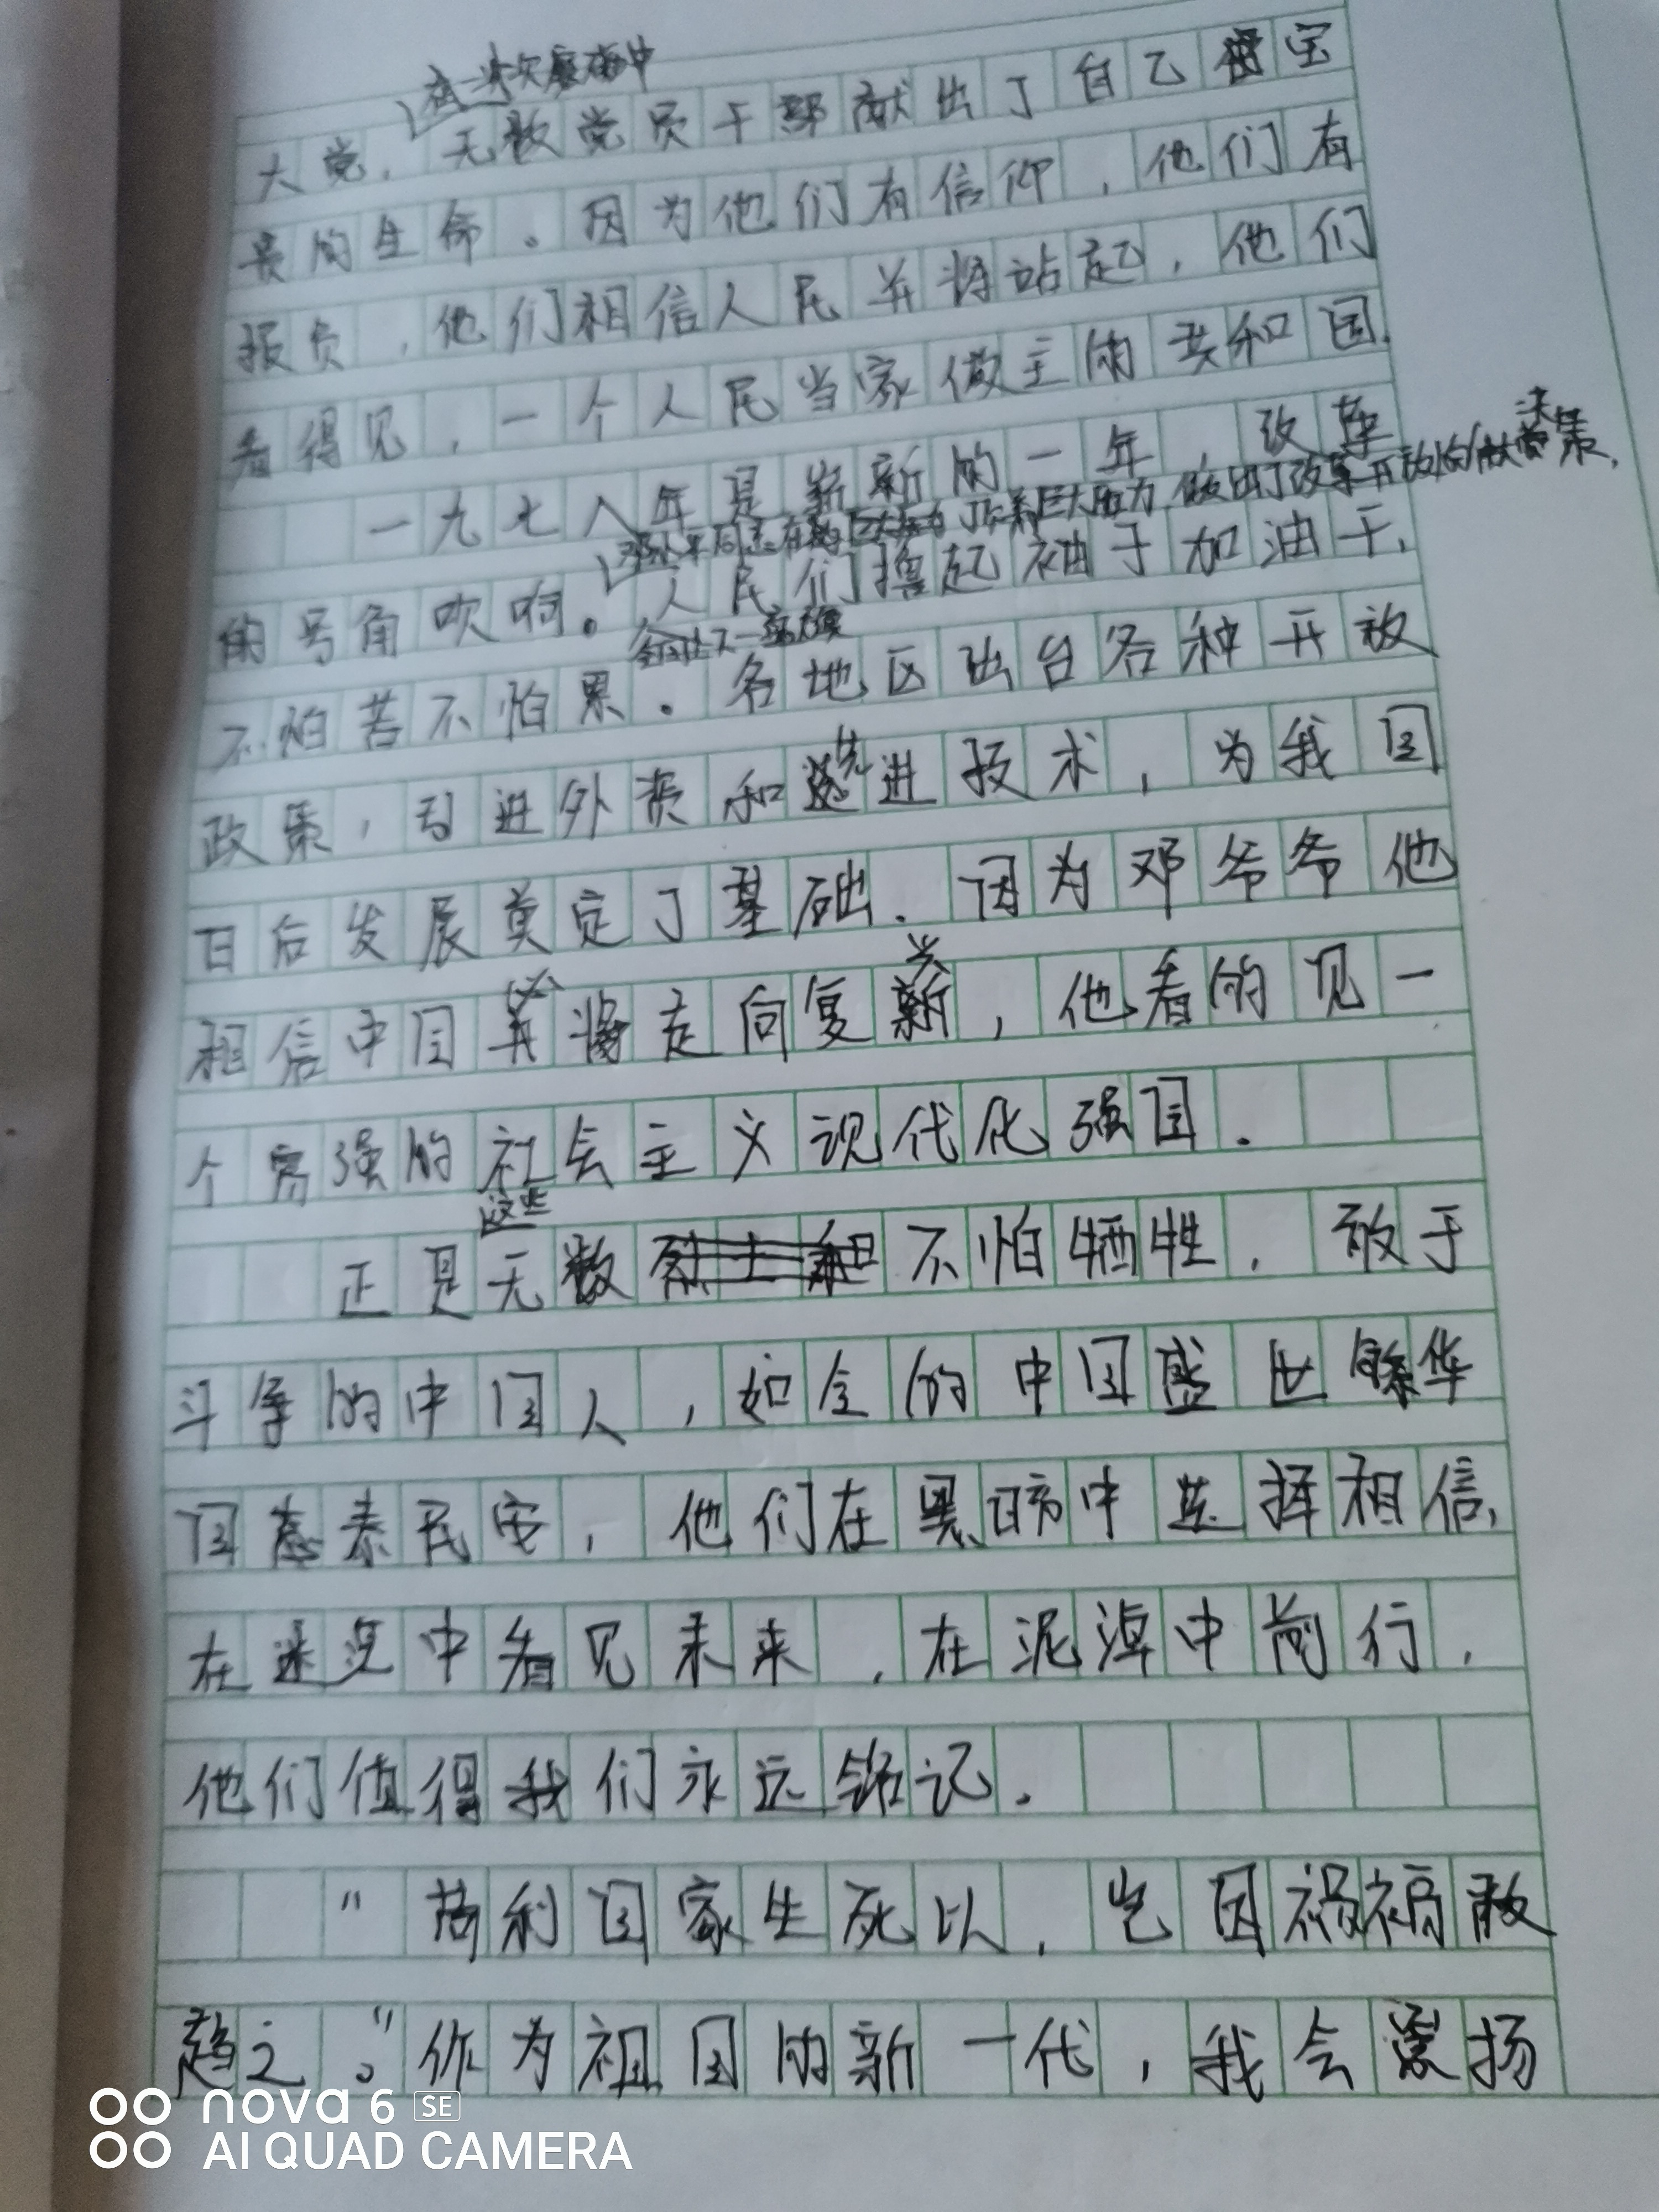 在一次次磨难中
大党，无数党员干部献出了自己宝
贵的生命。因为他们有信仰，他们有
报负，他们相信人民并将站起，他们
看得见，一个人民当家做主的共和国.
一九七八年是崭新的一年，改革
邓小平同志在巨大压力，做出了改革开放的决策，
的号角吹响。人民们撸起袖子加油干，
不怕苦不怕累。各地区出台各种开放
政策，引进外资和先进技术，为我国
日后发展奠定了基础.因为邓爷爷他
相信中国必将走向复兴，他看的见一
个富强的社会主义现代化强国.
这些
正是无数不怕牺牲，敢于
斗争的中国人，如今的中国盛世繁华
国泰民安，他们在黑暗中选择相信，
在迷茫中看见未来，在泥淖中前行，
他们值得我们永远铭记.
“苟利国家生死以，岂因祸福敢
趋之。”作为祖国的新一代，我会发扬
nova 6 SE
AI QUAD CAMERA